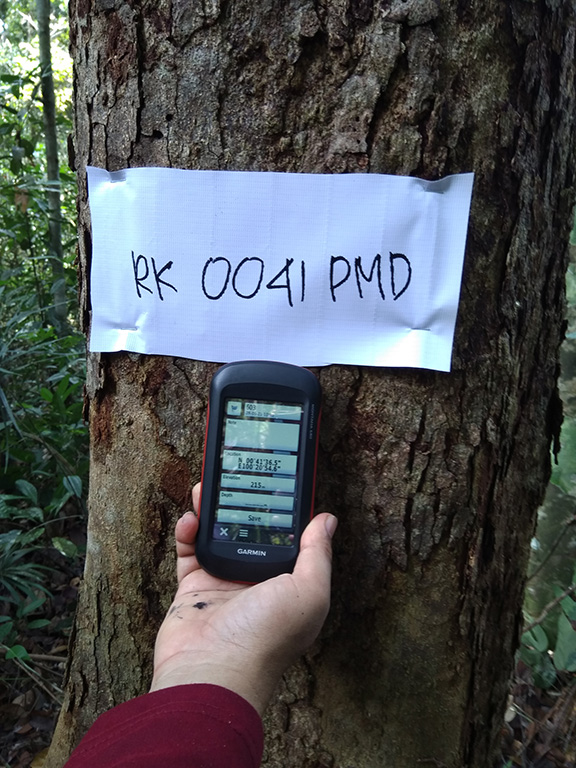 RK 0041 PMD
503
Note
Location
N 00°41'36.5"
E100°20'54.6"
Elevation
215m
Depth
Save
GARMIN